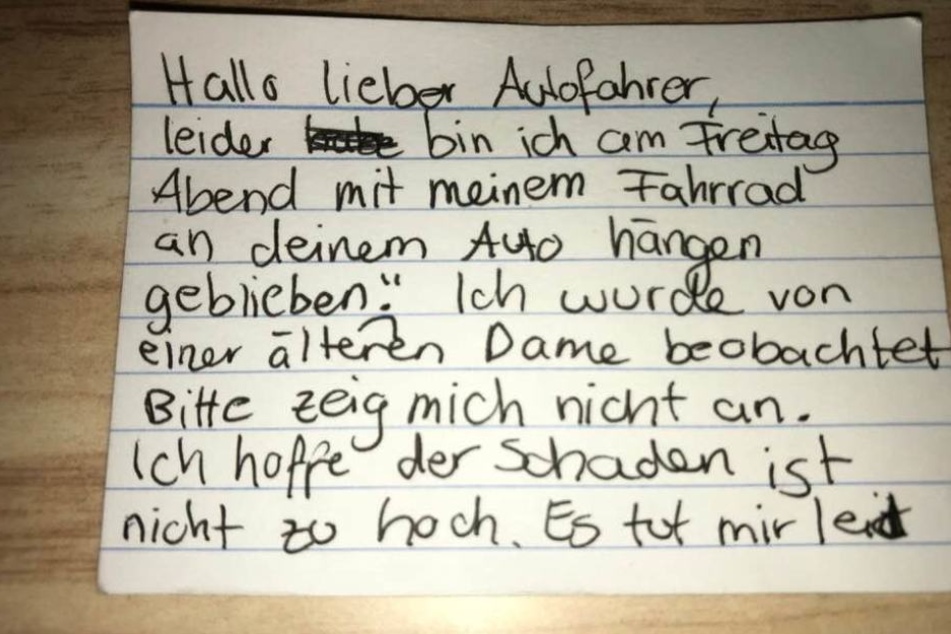 Hallo lieber Autofahrer,
leider bin ich am Freitag
Abend mit meinem Fahrrad
an deinem Auto hängen
geblieben. Ich wurde von
einer älteren Dame beobachtet
Bitte zeig mich nicht an.
Ich hoffe der Schaden ist
nicht zu hoch. Es tut mir leid